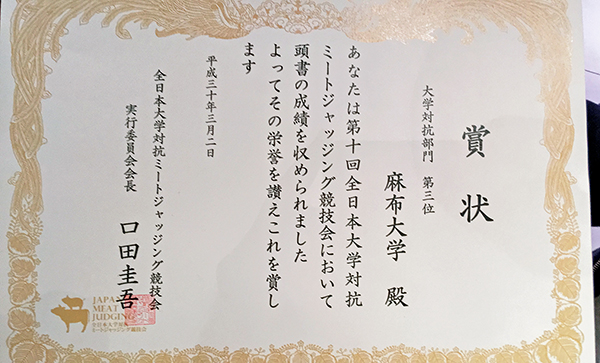 賞状
大学対抗部門 第三位
麻布大学 殿
あなたは第十回全日本大学対抗
ミートジャッジング競技会において
頭書の成績を収められました
よってその栄誉を讃えこれを賞し
ます
平成三十年三月二日
全日本大学対抗ミートジャッジング競技会
実行委員会会長 口田圭吾
JAPAN
MEAT
JUDGING
全日本大学対抗
ミートジャッジング競技会